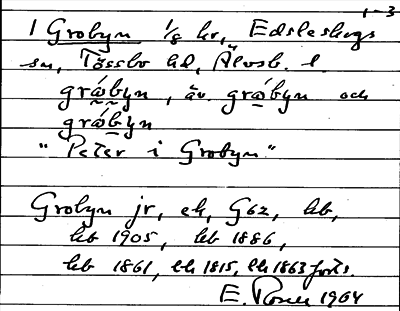 1-3
1 Grobyn 1/8 hr, Edsleskogs
sn, Tössbo hd, Älvsb. l.
grǿbyn, äv. grǿbyn och
grǿbyn
"Peter i Grobyn"
Grobyn jr, ek, G62, hb,
hb 1905, hb 1886,
hb 1861, lh 1815, lh 1863 forts.
E. 1964